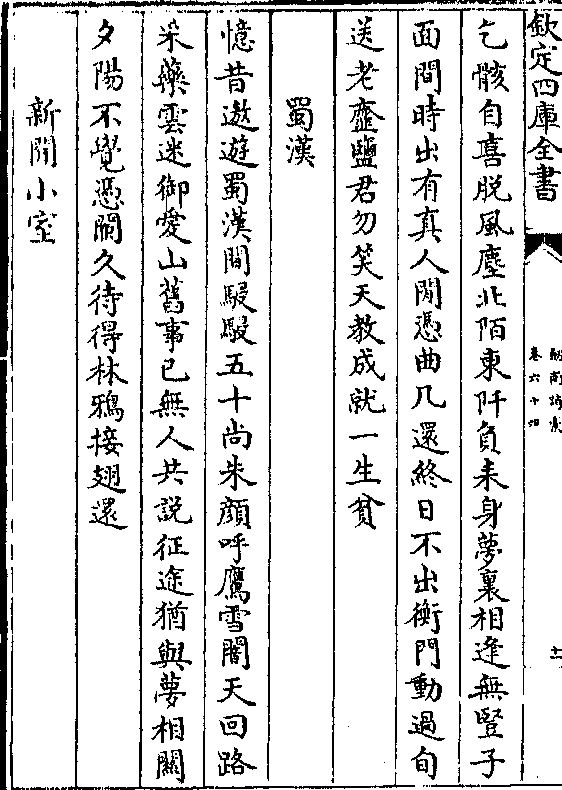 欽定四庫全書
劒南詩藁
卷六十四
十一
乞骸自喜脱風塵北陌東阡負耒身夢裏相逢無豎子
面間時出有真人閒憑曲几還終日不出衡門動過旬
送老虀鹽君勿笑天教成就一生貧
蜀漢
憶昔遨遊蜀漢間駸駸五十尚朱顔呼鷹雪闇天回路
采藥雲迷御愛山舊事已無人共説征途猶與夢相關
夕陽不覺憑闌久待得林鴉接翅還
新開小室